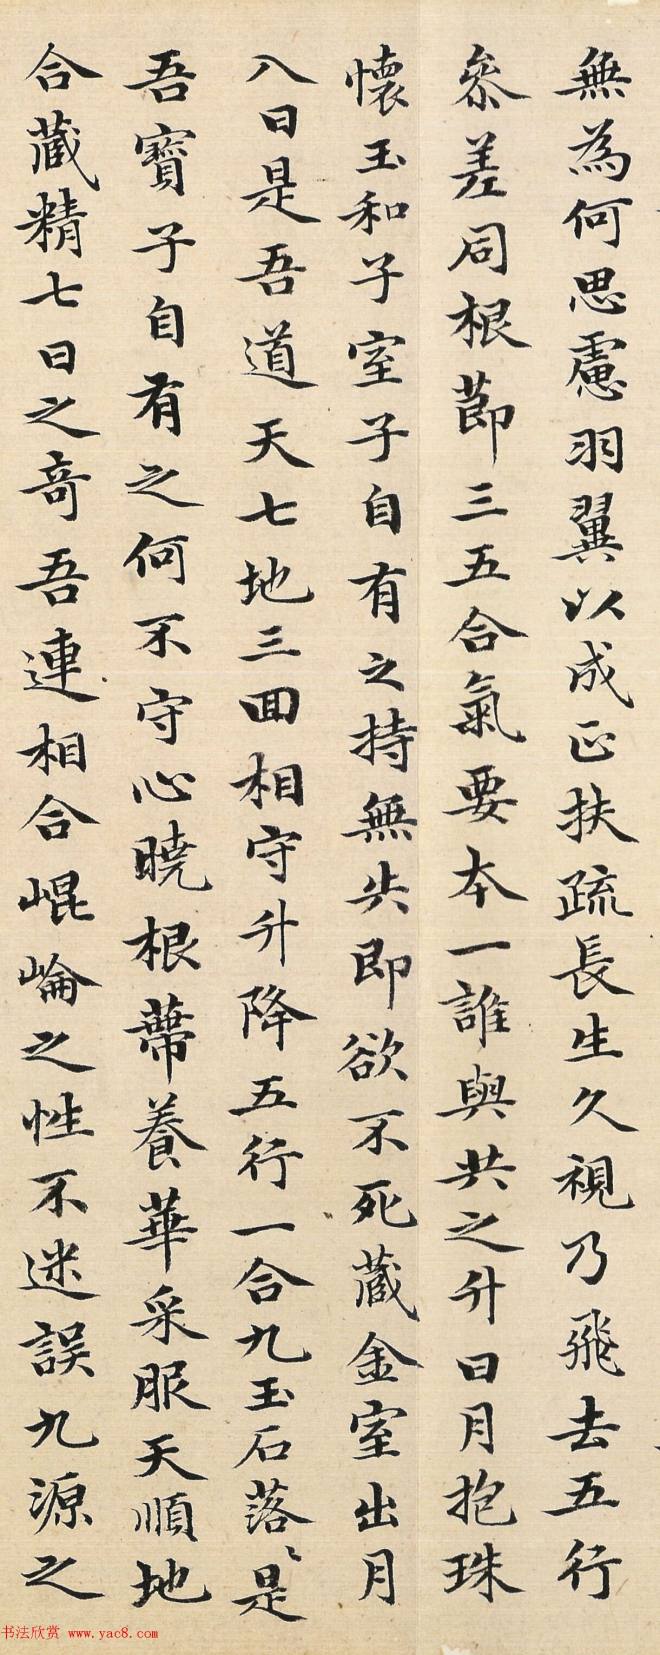 無為何思慮羽翼以成正扶疏長生久視乃飛去五行
参差同根莭三五合氣要本一誰與共之升日月抱珠
懷玉和子室子自有之持無失即欲不死藏金室出月
入日是吾道天七地三回相守升降五行一合九玉石落〻是
吾寶子自有之何不守心曉根蔕養華采服天順地
合藏精七日之奇吾連相合崐崘之性不迷誤九源之
书法欣赏 www.yac8.com